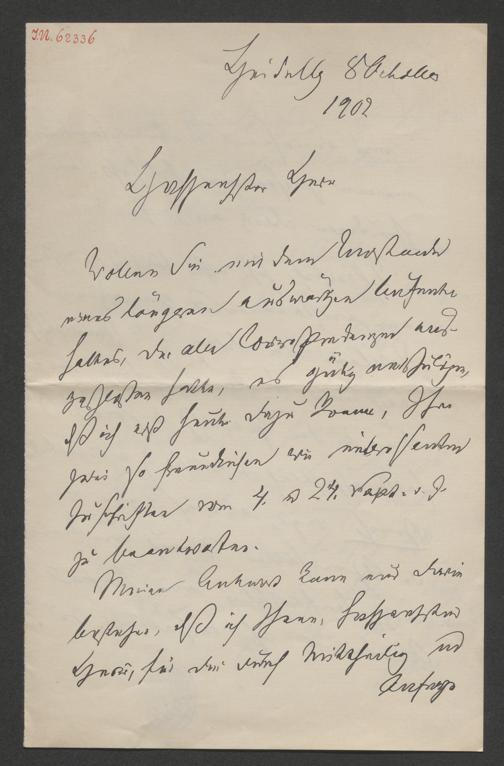 I.N. 62336
Heidelbg 8 October
1902
Hochgeehrter Herr
Wollen Sie mit dem Umstande
eines längeren auswärtigen Aufent-
haltes, der alle Correspondenzen aus-
geschlossen hatte, es gütig entschuldigen,
daß ich erst heute dazu komme, Ihre
zwei so freundlichen wie interessanten
Zuschriften vom 4. u 24. Sept. d. J.
zu beantworten.
Meine Antwort kann nur darin
bestehen, daß ich Ihnen, hochgeehrter
Herr, für die durch Mittheilung und
Anfrage